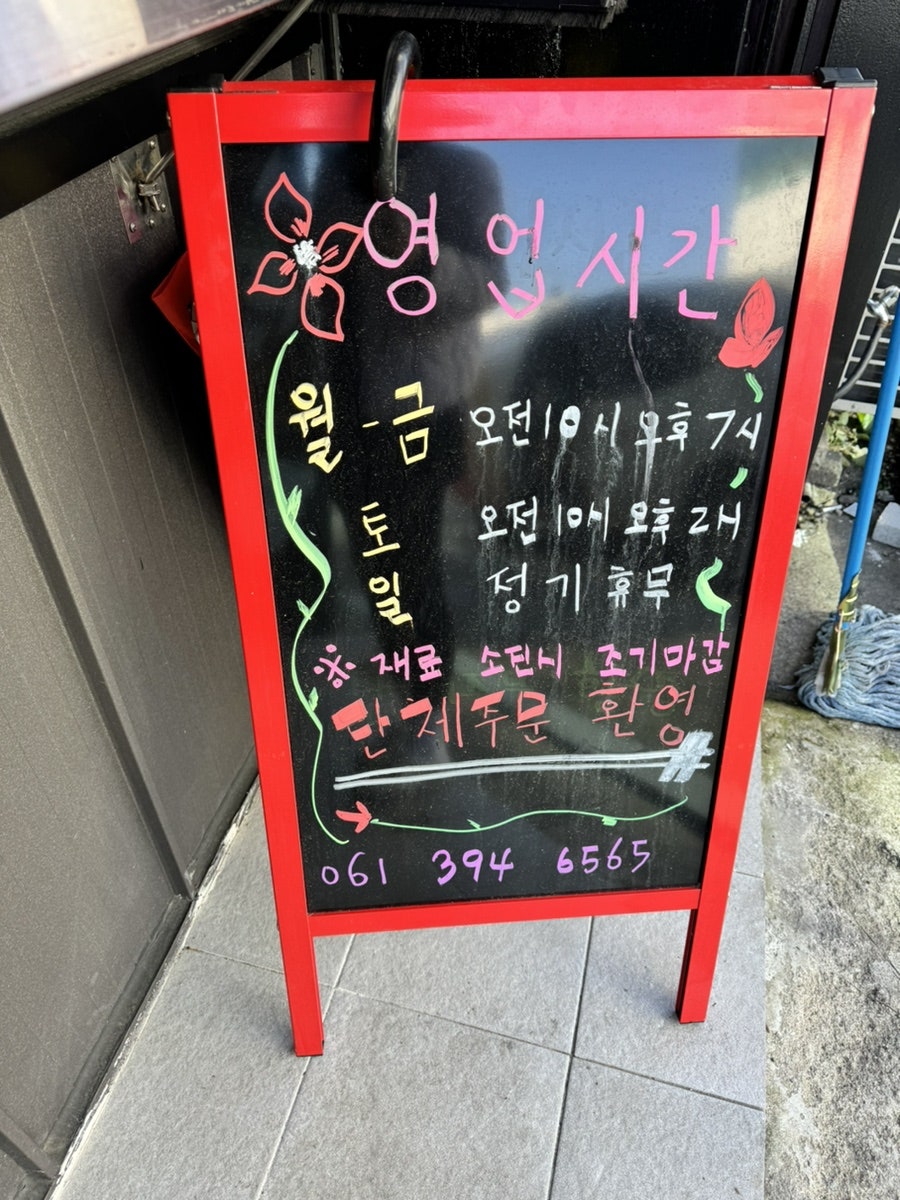 영업시간
월 - 금 오전10시 오후7시
토 오전10시 오후2시
일 정기휴무
※ 재료 소진시 조기마감
단체주문 환영
061 394 6565